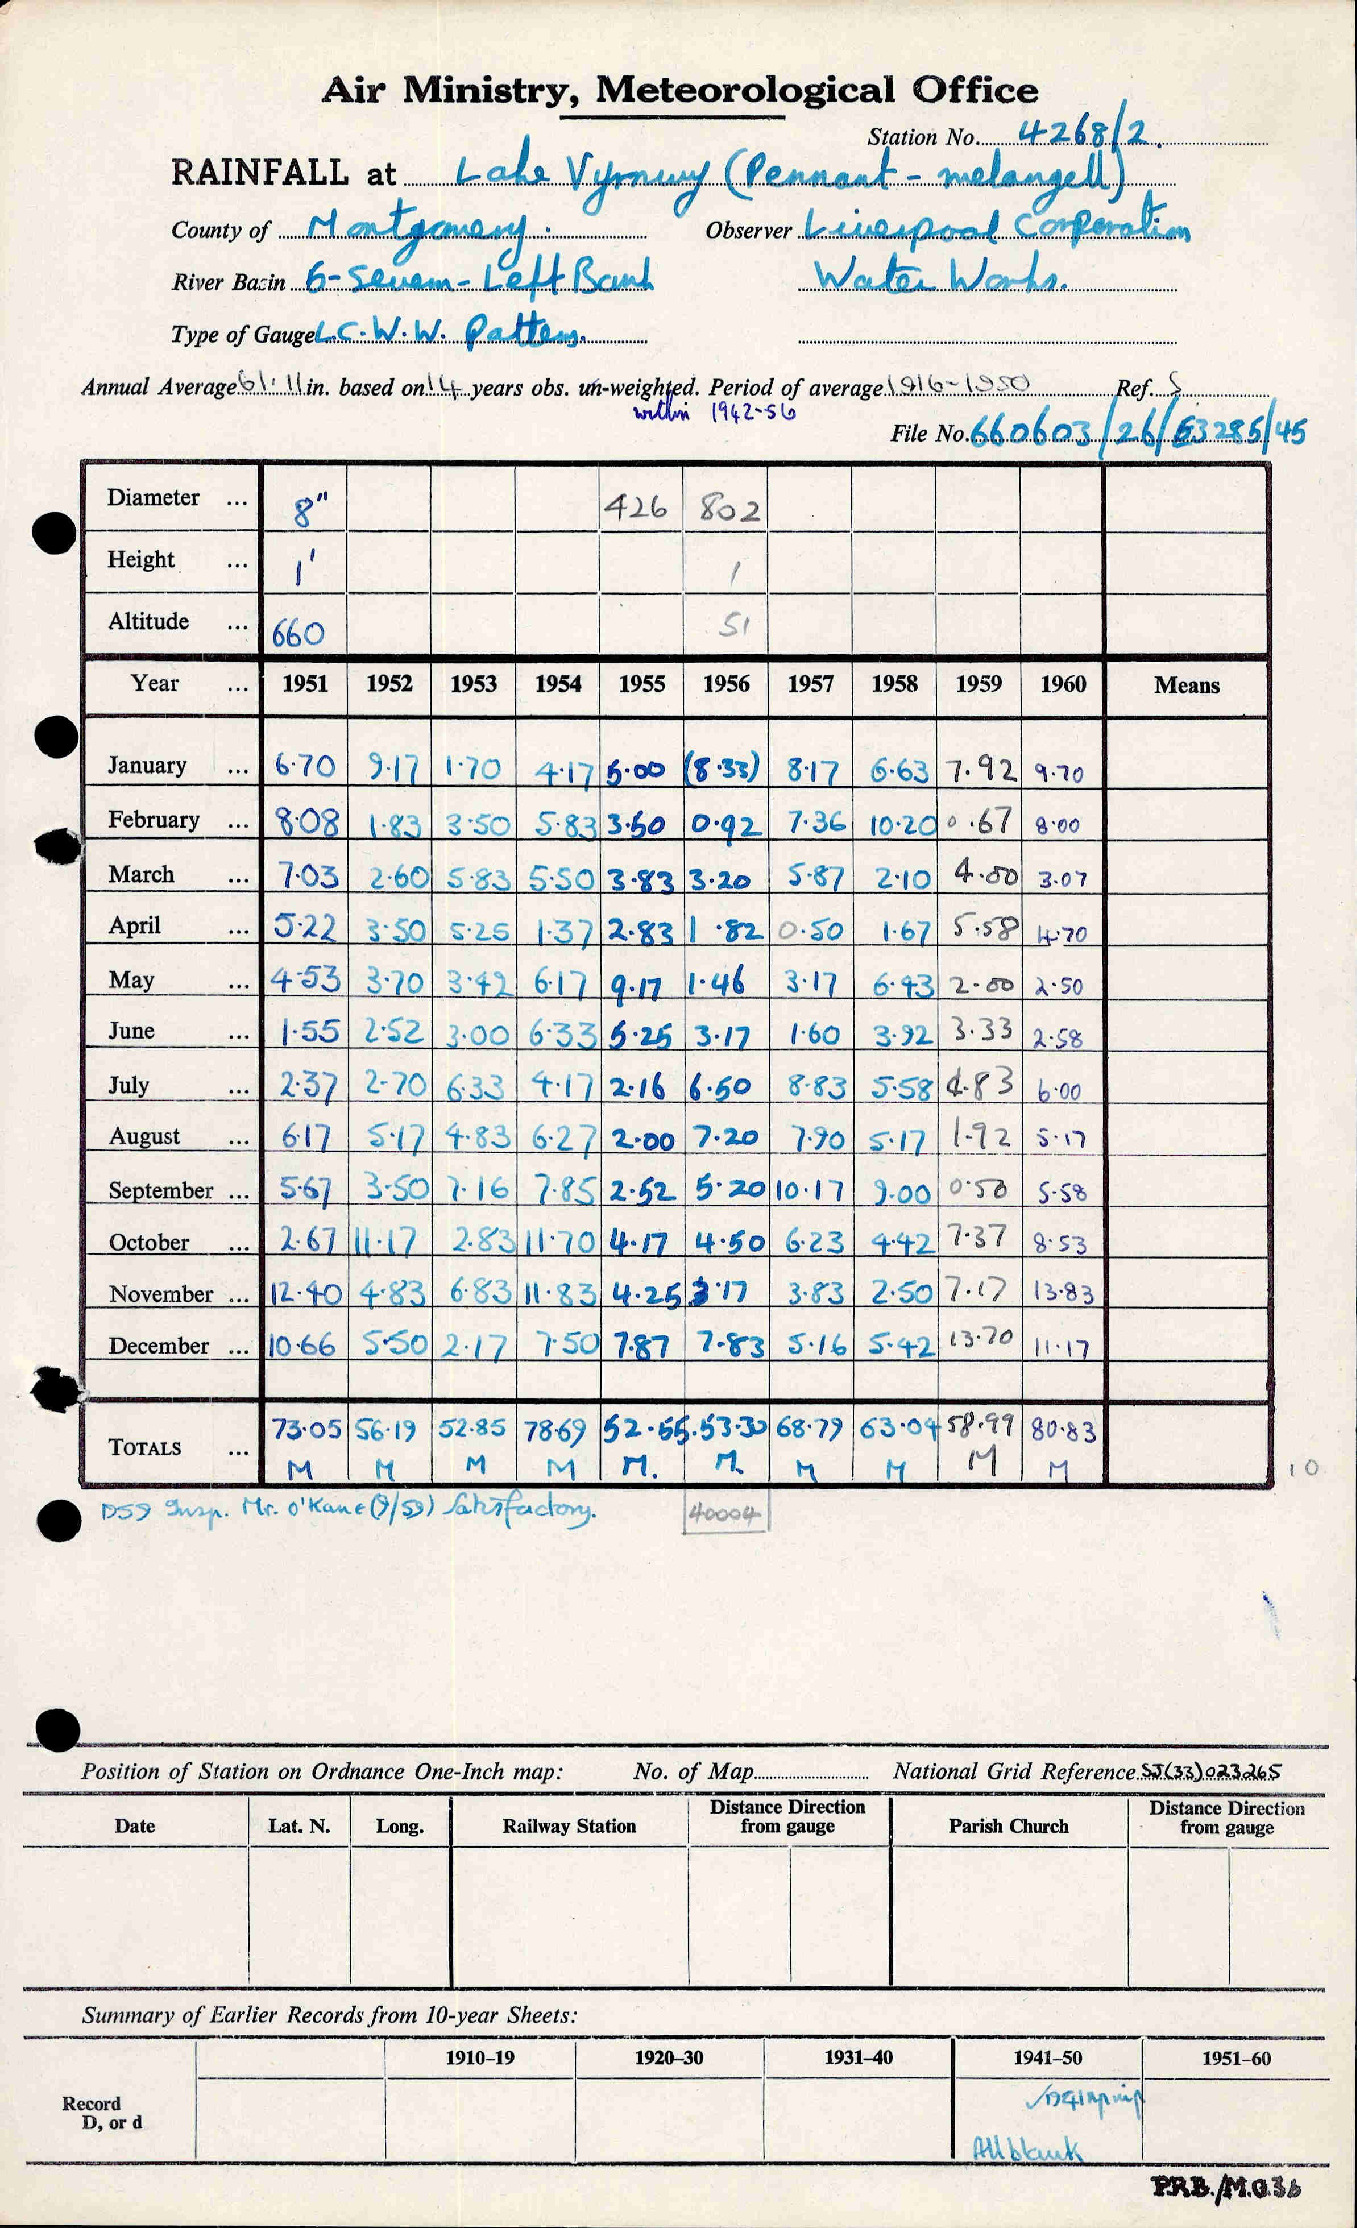 Air Ministry, Meteorological Office
Station No. 4268/2.
RAINFALL at Lake Vyrnwy (Pennant - melangell)
County of Montgomery. Observer Liverpool Corporation
River Basin 6 - Severn - Left Bank Water Works.
Type of Gauge L.C.W.W. Pattern.
Annual Average 61.11 in. based on 14 years obs. un-weighted. Period of average 1916-1950 Ref. S
within 1942-56
File No. 660603/26/E3285/45
Diameter ... 8" 426 802
Height ... 1' 1
Altitude ... 660 51
Year ... 1951 1952 1953 1954 1955 1956 1957 1958 1959 1960 Means
January ... 6.70 9.17 1.70 4.17 5.00 (8.33) 8.17 6.63 7.92 9.70
February ... 8.08 1.83 3.50 5.83 3.50 0.92 7.36 10.20 0.67 8.00
March ... 7.03 2.60 5.83 5.50 3.83 3.20 5.87 2.10 4.00 3.07
April ... 5.22 3.50 5.25 1.37 2.83 1.82 0.50 1.67 5.58 4.70
May ... 4.53 3.70 3.42 6.17 9.17 1.46 3.17 6.43 2.00 2.50
June ... 1.55 2.52 3.00 6.33 5.25 3.17 1.60 3.92 3.33 2.58
July ... 2.37 2.70 6.33 4.17 2.16 6.50 8.83 5.58 4.83 6.00
August ... 6.17 5.17 4.83 6.27 2.00 7.20 7.90 5.17 1.92 5.17
September ... 5.67 3.50 7.16 7.85 2.52 5.20 10.17 9.00 0.50 5.58
October ... 2.67 11.17 2.83 11.70 4.17 4.50 6.23 4.42 7.37 8.53
November ... 12.40 4.83 6.83 11.83 4.25 3.17 3.83 2.50 7.17 13.83
December ... 10.66 5.50 2.17 7.50 7.87 7.83 5.16 5.42 13.70 11.17
TOTALS ... 73.05 56.19 52.85 78.69 52.55 53.30 68.79 63.04 58.99 80.83
M M M M M. M. M M M M 10
1959 Insp. Mr. O'Kane (9/59) Satisfactory. 40004
Position of Station on Ordnance One-Inch map: No. of Map National Grid Reference SJ(33)023265
Date Lat. N. Long. Railway Station Distance Direction from gauge Parish Church Distance Direction from gauge
Summary of Earlier Records from 10-year Sheets:
1910–19 1920–30 1931–40 1941–50 1951–60
Record
D, or d
All blank
P.R.B./M.O.36